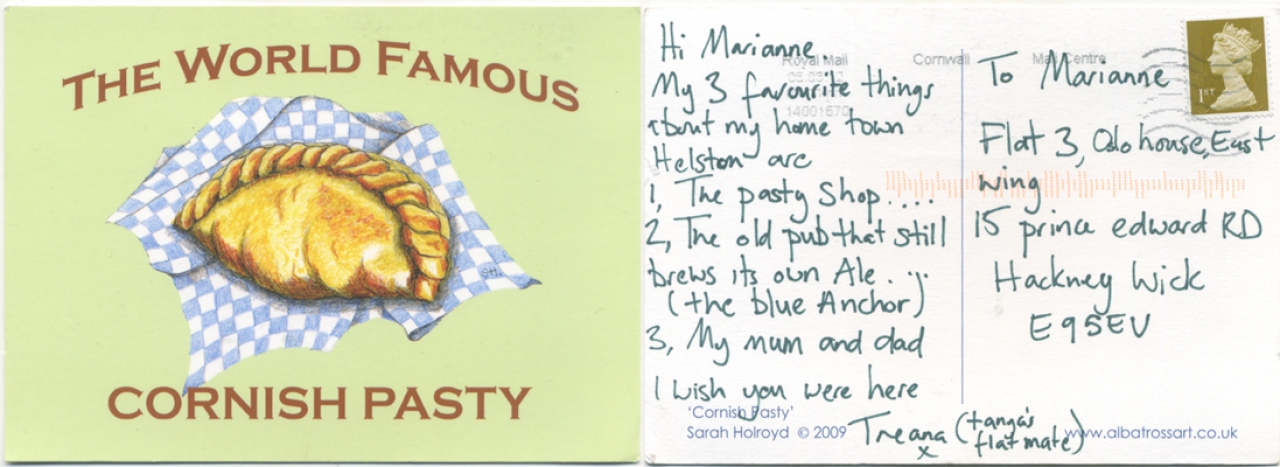 THE WORLD FAMOUS
CORNISH PASTY
SH
Hi Marianne
My 3 favourite things
about my home town
Helston are
1, The pasty Shop....
2, The old pub that still
brews its own Ale...
(the blue Anchor)
3, My mum and dad
I wish you were here
Treana (tanya's
flatmate)
x
'Cornish Pasty'
Sarah Holroyd © 2009
www.albatrossart.co.uk
Royal Mail
Cornwall
Mail Centre
14001670
1ST
To Marianne
Flat 3, Oslo house, East
wing
15 prince edward RD
Hackney Wick
E9 5EV